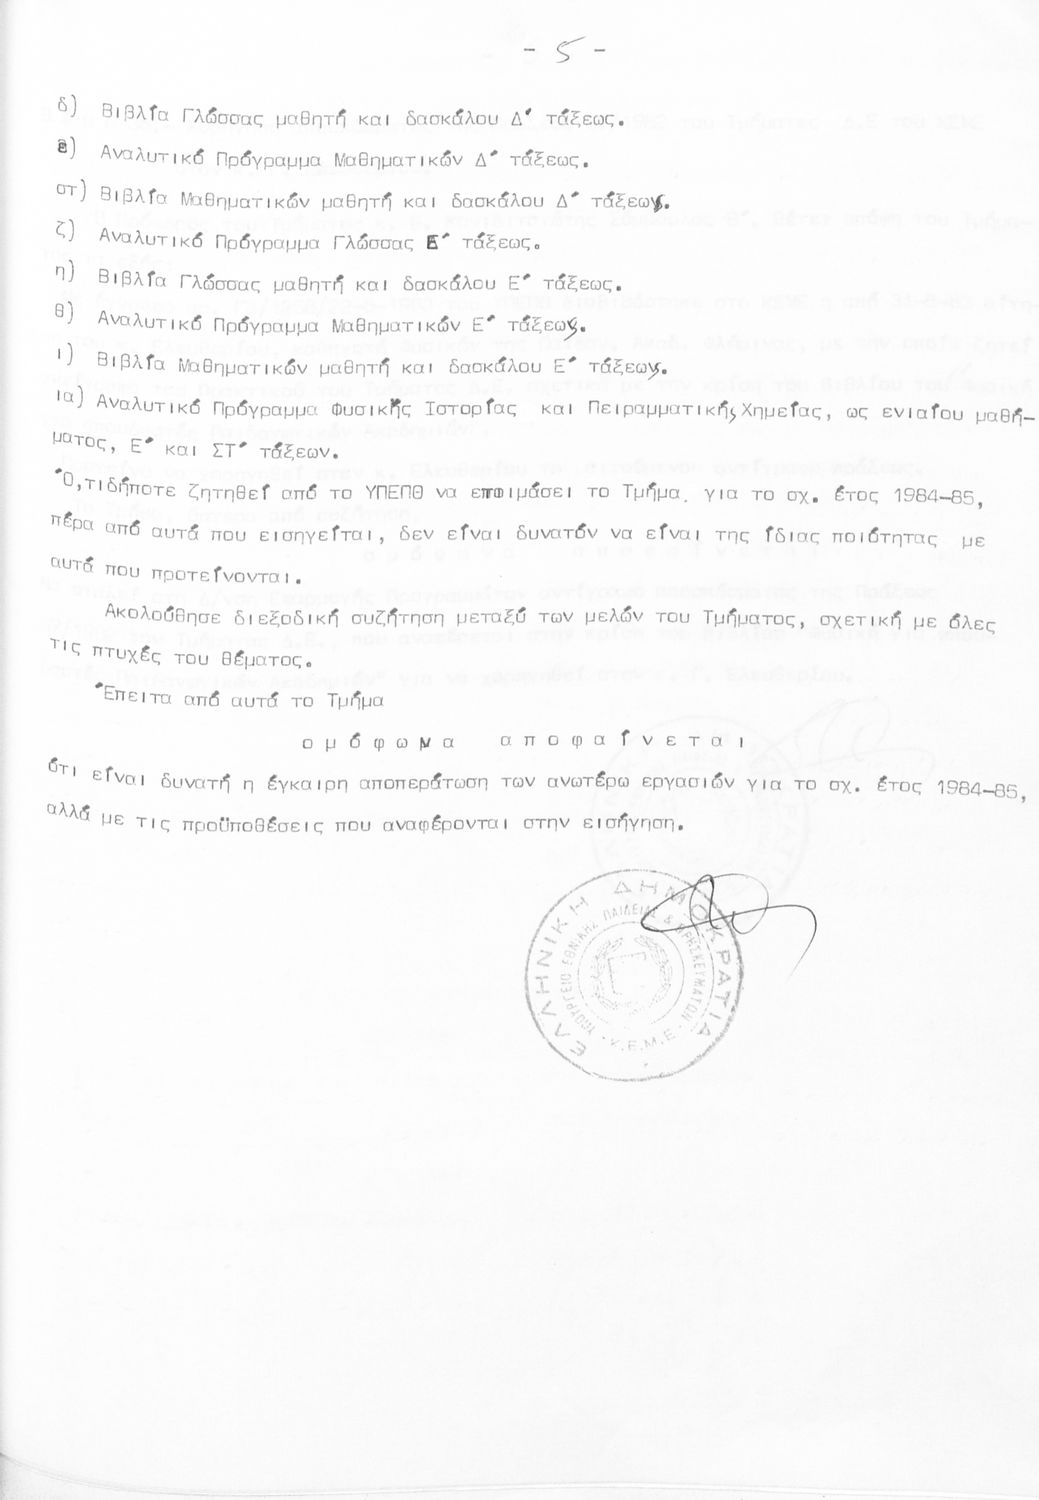 - 5 -
δ) Βιβλία Γλώσσας μαθητή και δασκάλου Δ΄ τάξεως.
ε) Αναλυτικό Πρόγραμμα Μαθηματικών Δ΄ τάξεως.
στ) Βιβλία Μαθηματικών μαθητή και δασκάλου Δ΄ τάξεως.
ζ) Αναλυτικό Πρόγραμμα Γλώσσας Ε΄ τάξεως.
η) Βιβλία Γλώσσας μαθητή και δασκάλου Ε΄ τάξεως.
θ) Αναλυτικό Πρόγραμμα Μαθηματικών Ε΄ τάξεως.
ι) Βιβλία Μαθηματικών μαθητή και δασκάλου Ε΄ τάξεως.
ια) Αναλυτικό Πρόγραμμα Φυσικής Ιστορίας και Πειραμματικής Χημείας, ως ενιαίου μαθή-
ματος, Ε΄ και ΣΤ΄ τάξεων.
Ό,τιδήποτε ζητηθεί από το ΥΠΕΠΘ να ετοιμάσει το Τμήμα για το σχ. έτος 1984-85,
πέρα από αυτά που εισηγείται, δεν είναι δυνατόν να είναι της ίδιας ποιότητας με
αυτά που προτείνονται.
Ακολούθησε διεξοδική συζήτηση μεταξύ των μελών του Τμήματος, σχετική με όλες
τις πτυχές του θέματος.
Έπειτα από αυτά το Τμήμα
ο μ ό φ ω ν α α π ο φ α ί ν ε τ α ι
ότι είναι δυνατή η έγκαιρη αποπεράτωση των ανωτέρω εργασιών για το σχ. έτος 1984-85,
αλλά με τις προϋποθέσεις που αναφέρονται στην εισήγηση.
ΕΛΛΗΝΙΚΗ ΔΗΜΟΚΡΑΤΙΑ
ΥΠΟΥΡΓΕΙΟ ΕΘΝΙΚΗΣ ΠΑΙΔΕΙΑΣ & ΘΡΗΣΚΕΥΜΑΤΩΝ
Κ.Ε.Μ.Ε.